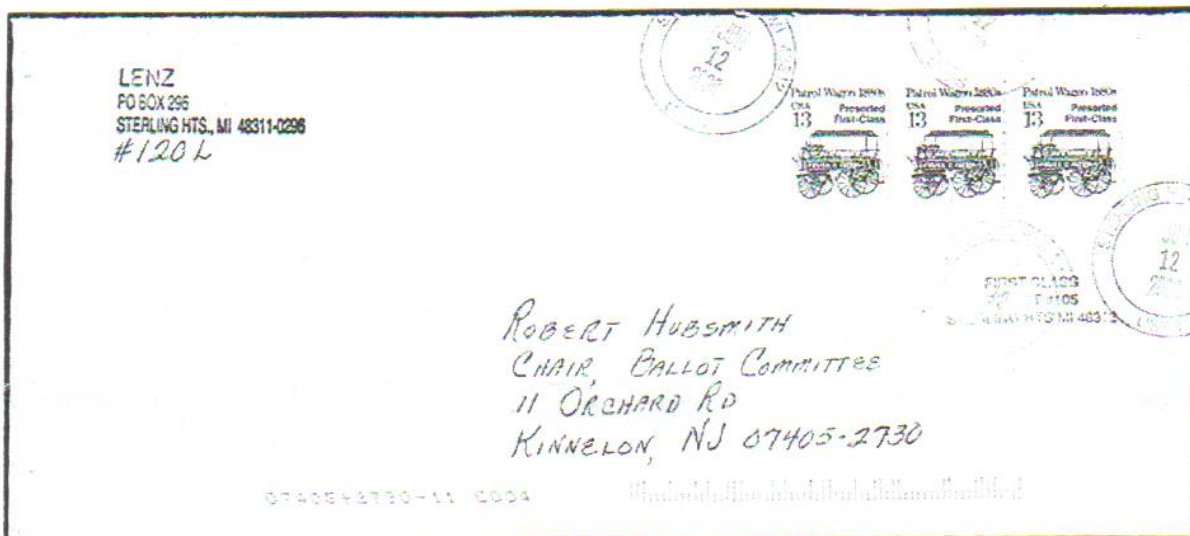 LENZ
PO BOX 296
STERLING HTS., MI 48311-0296
#120L
12
Patrol Wagon 1880s
USA
13
Presorted
First-Class
Patrol Wagon 1880s
USA
13
Presorted
First-Class
Patrol Wagon 1880s
USA
13
Presorted
First-Class
STERLING
12
FIRST CLASS
HTS MI
ROBERT HUBSMITH
CHAIR, BALLOT COMMITTEE
11 ORCHARD RD
KINNELON, NJ 07405-2730
07405+2730-11 C004